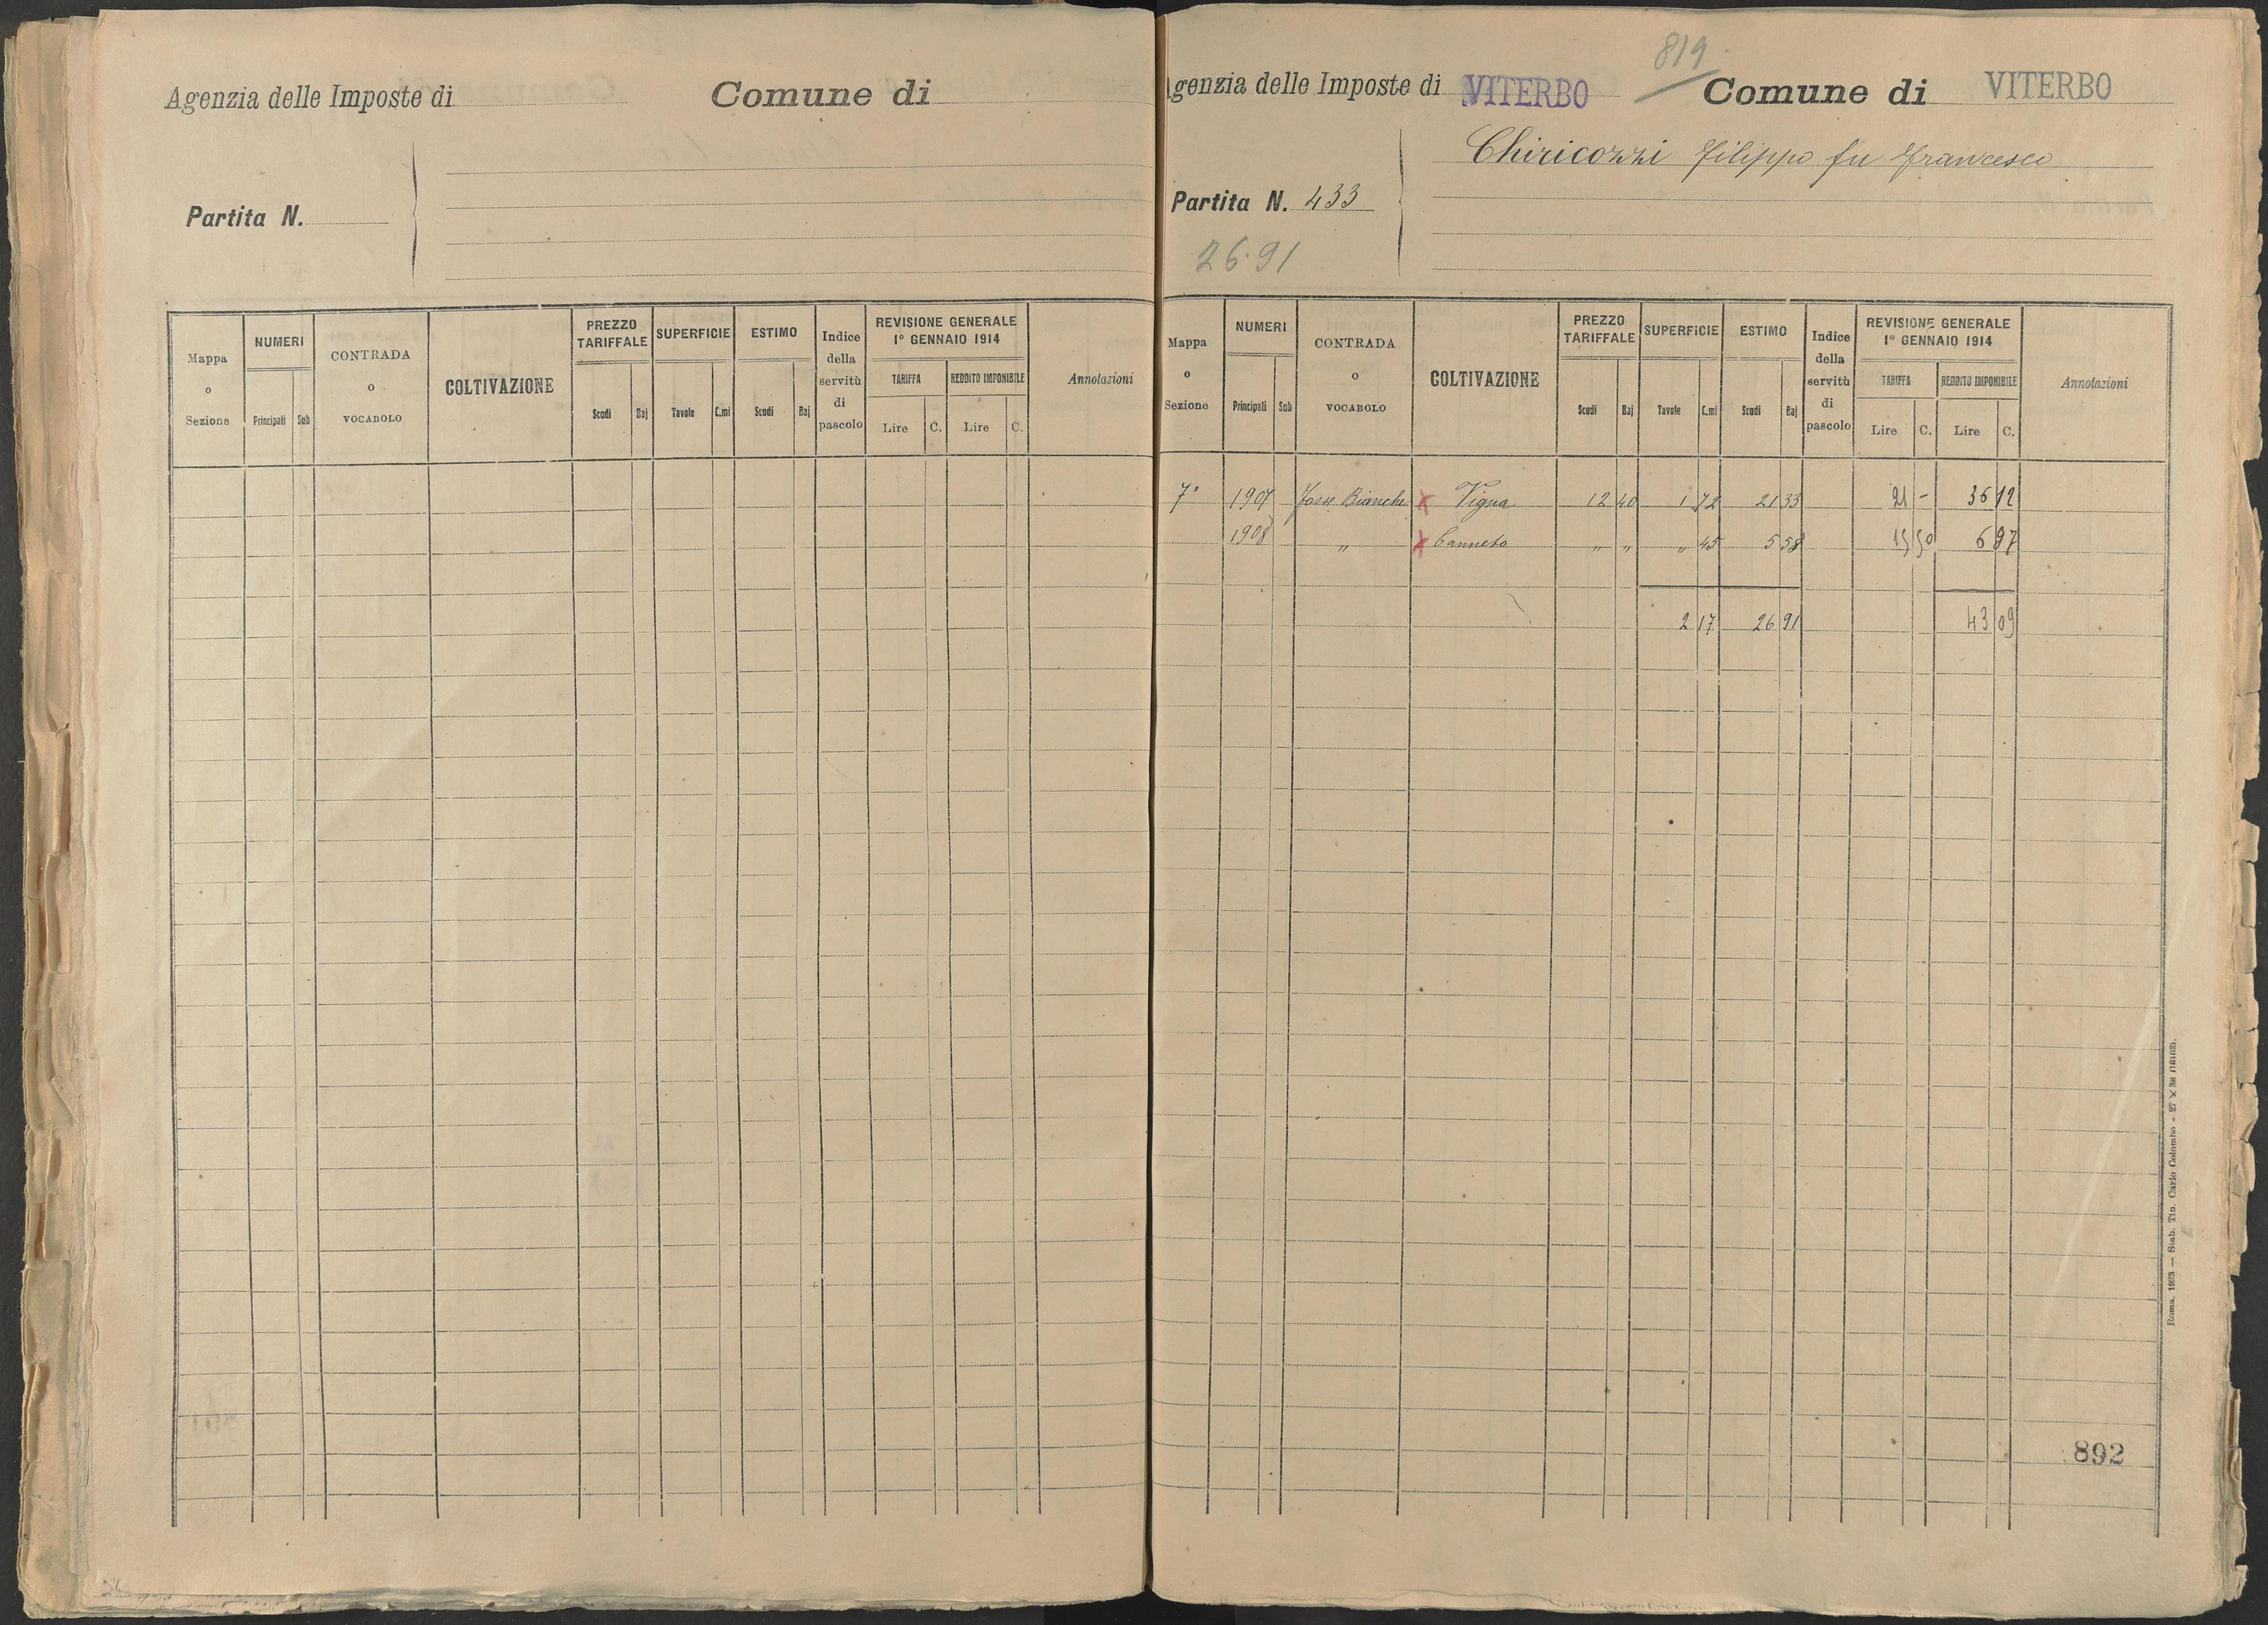 Agenzia delle Imposte di Comune di
Partita N.
Mappa o Sezione
NUMERI
Principali Sub
CONTRADA o VOCABOLO
COLTIVAZIONE
PREZZO TARIFFALE
Scudi Baj
SUPERFICIE
Tavole C.mi
ESTIMO
Scudi Baj
Indice della servitù di pascolo
REVISIONE GENERALE
1° GENNAIO 1914
TARIFFA REDDITO IMPONIBILE
Lire C. Lire C.
Annotazioni
819
Agenzia delle Imposte di VITERBO Comune di VITERBO
Chiricozzi Filippo fu Francesco
Partita N. 433
26.91
Mappa o Sezione
NUMERI
Principali Sub
CONTRADA o VOCABOLO
COLTIVAZIONE
PREZZO TARIFFALE
Scudi Baj
SUPERFICIE
Tavole C.mi
ESTIMO
Scudi Baj
Indice della servitù di pascolo
REVISIONE GENERALE
1° GENNAIO 1914
TARIFFA REDDITO IMPONIBILE
Lire C. Lire C.
Annotazioni
7° 1907 Bianche x Vigna 12 40 1 72 21 33 21 - 36 12
1908 " x Canneto " " " 45 5 58 15 50 6 97
2 17 26 91 43 09
892
Roma, 1923 — Stab. Tip. Carlo Colombo - 27 X 38